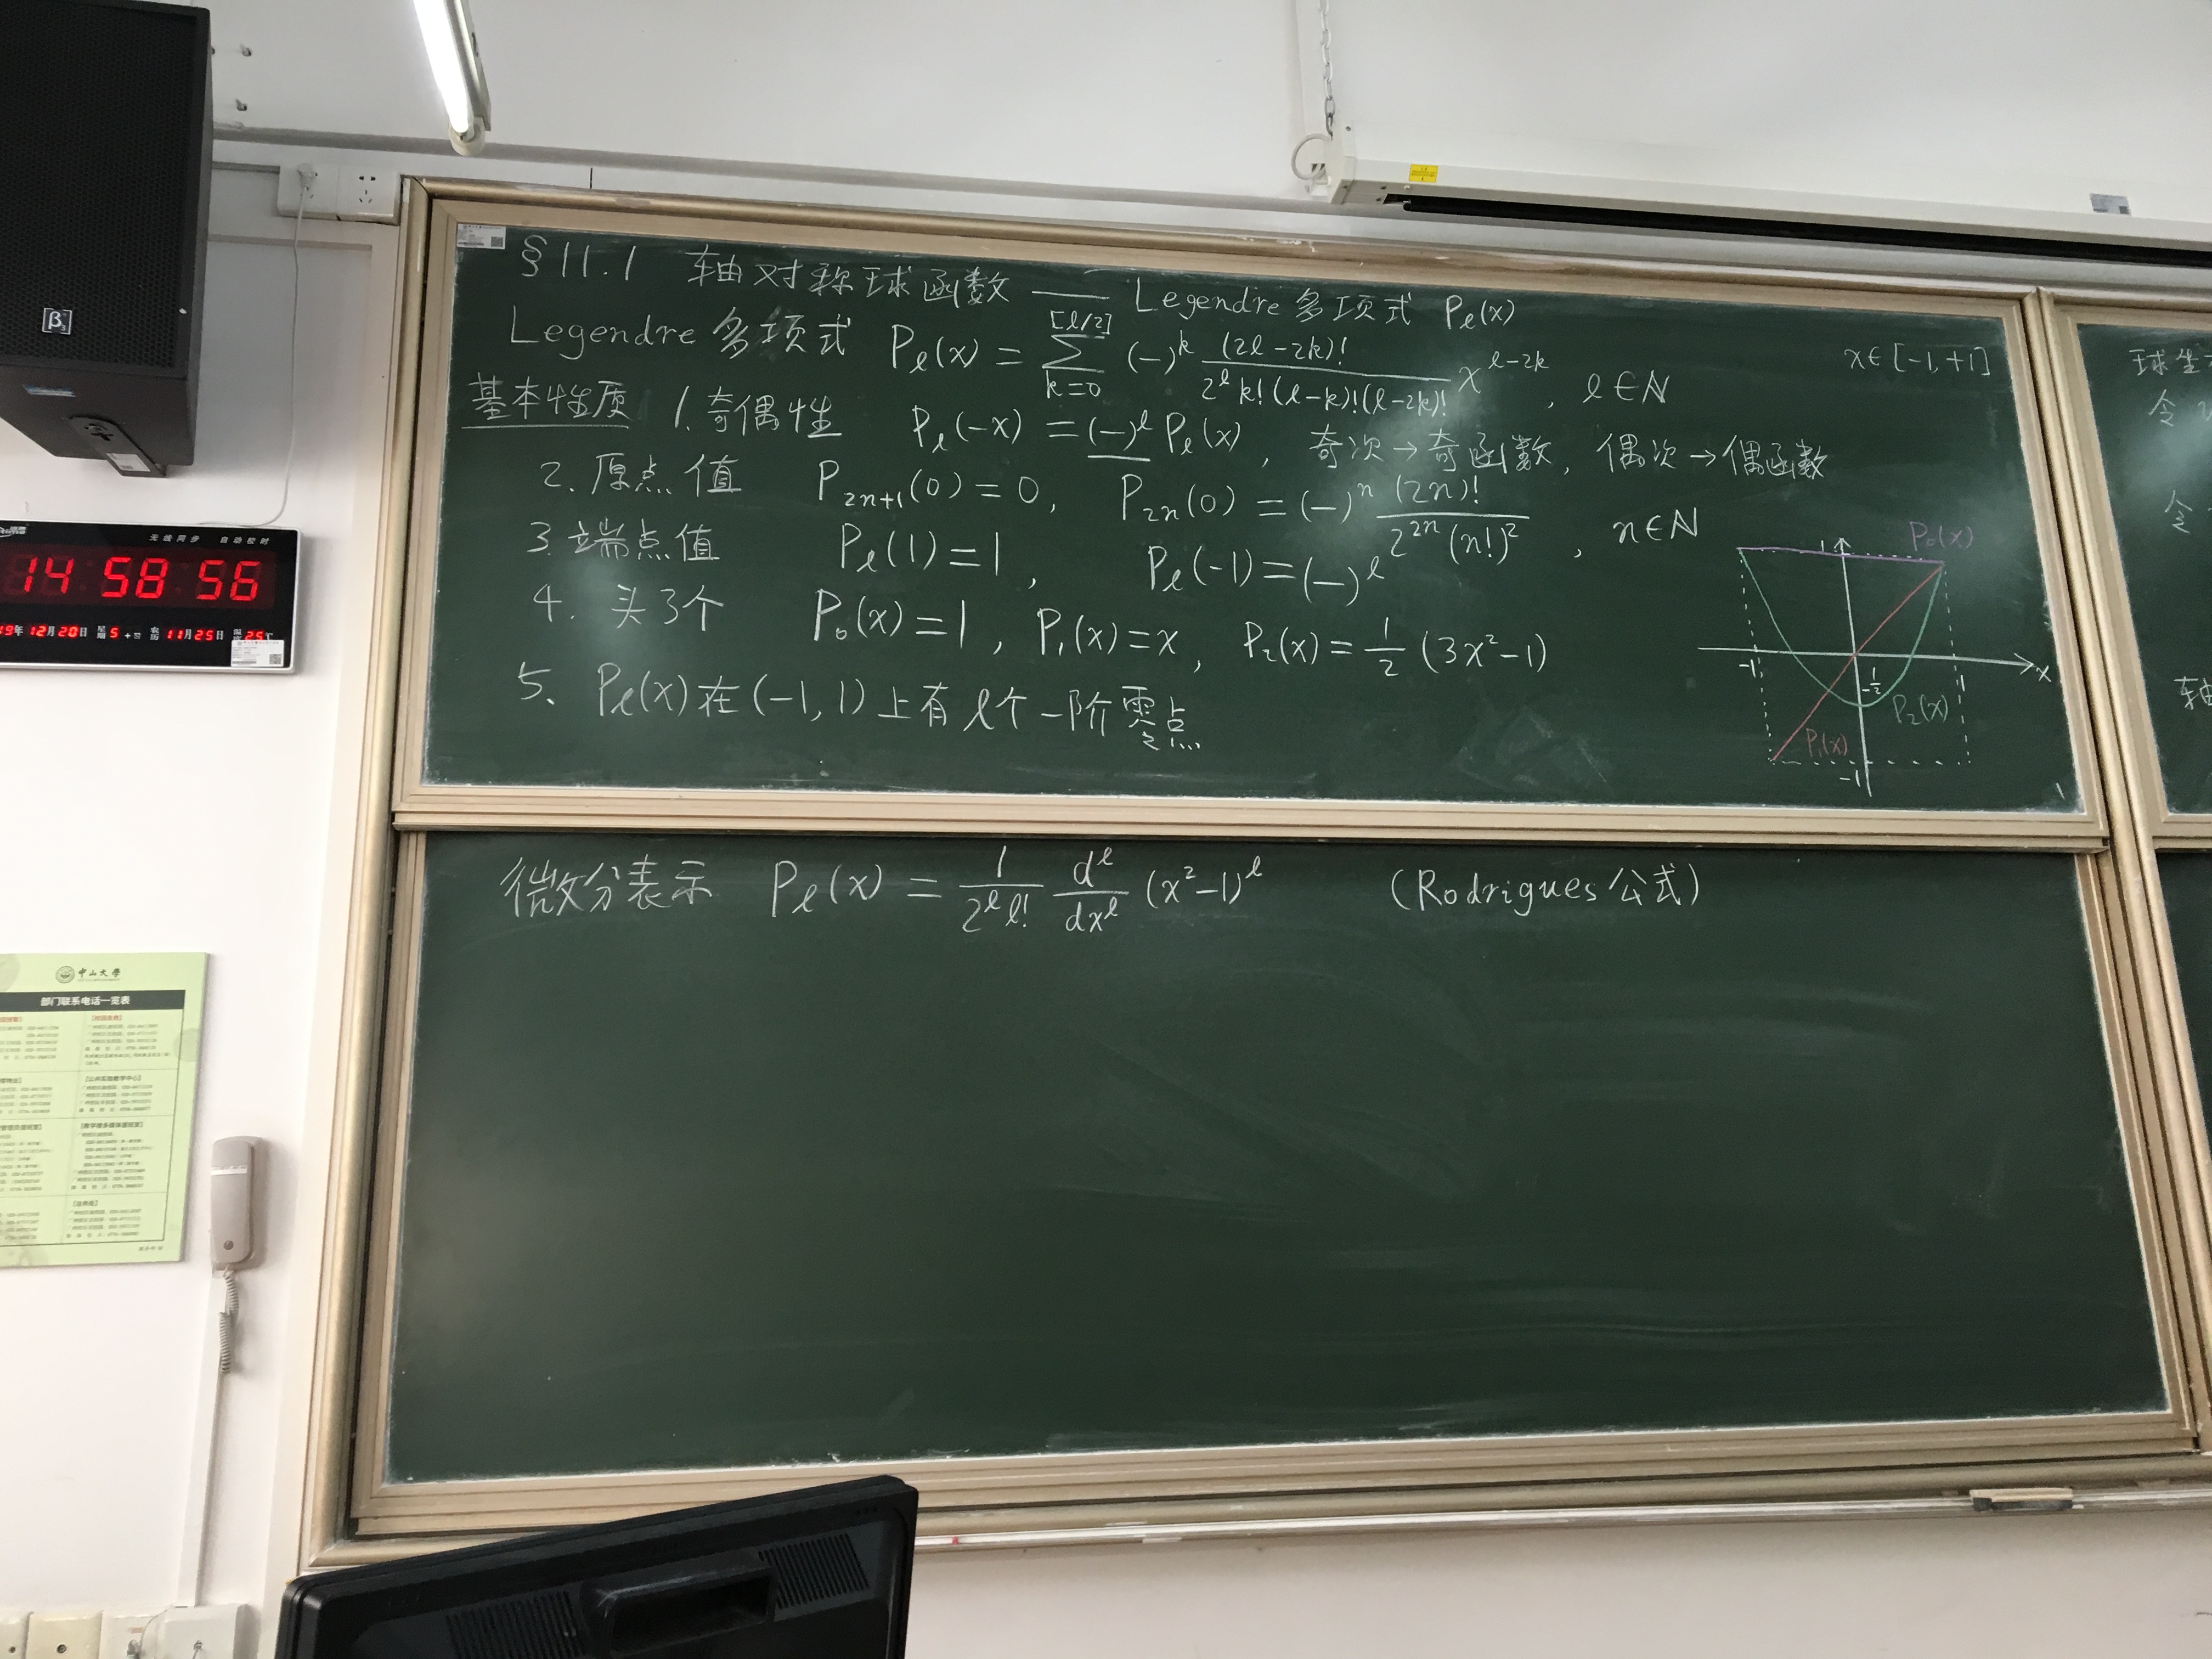 §11.1 轴对称球函数 —— Legendre多项式 Pℓ(x)
Legendre多项式 Pℓ(x) = ∑_{k=0}^{[ℓ/2]} (−)^k (2ℓ−2k)! / (2^ℓ k!(ℓ−k)!(ℓ−2k)!) x^{ℓ−2k}, ℓ∈N
x∈[−1,+1]
基本性质 1.奇偶性 Pℓ(−x) = (−)^ℓ Pℓ(x), 奇次→奇函数, 偶次→偶函数
2.原点值 P_{2n+1}(0)=0, P_{2n}(0)=(−)^n (2n)! / (2^{2n}(n!)^2), n∈N
3.端点值 Pℓ(1)=1, Pℓ(−1)=(−)^ℓ
4. 头3个 P₀(x)=1, P₁(x)=x, P₂(x)=1/2 (3x²−1)
5. Pℓ(x)在(−1,1)上有ℓ个一阶零点
1 P₀(x)
−1 1 x
−1/2
P₂(x)
P₁(x)
−1
微分表示 Pℓ(x) = 1/(2^ℓ ℓ!) d^ℓ/dx^ℓ (x²−1)^ℓ (Rodrigues公式)
令
令
轴
β3
无线同步 自动校时
14 58 56
19年 12月20日 星期5 农历 11月25日 25℃
中山大学
部门联系电话一览表